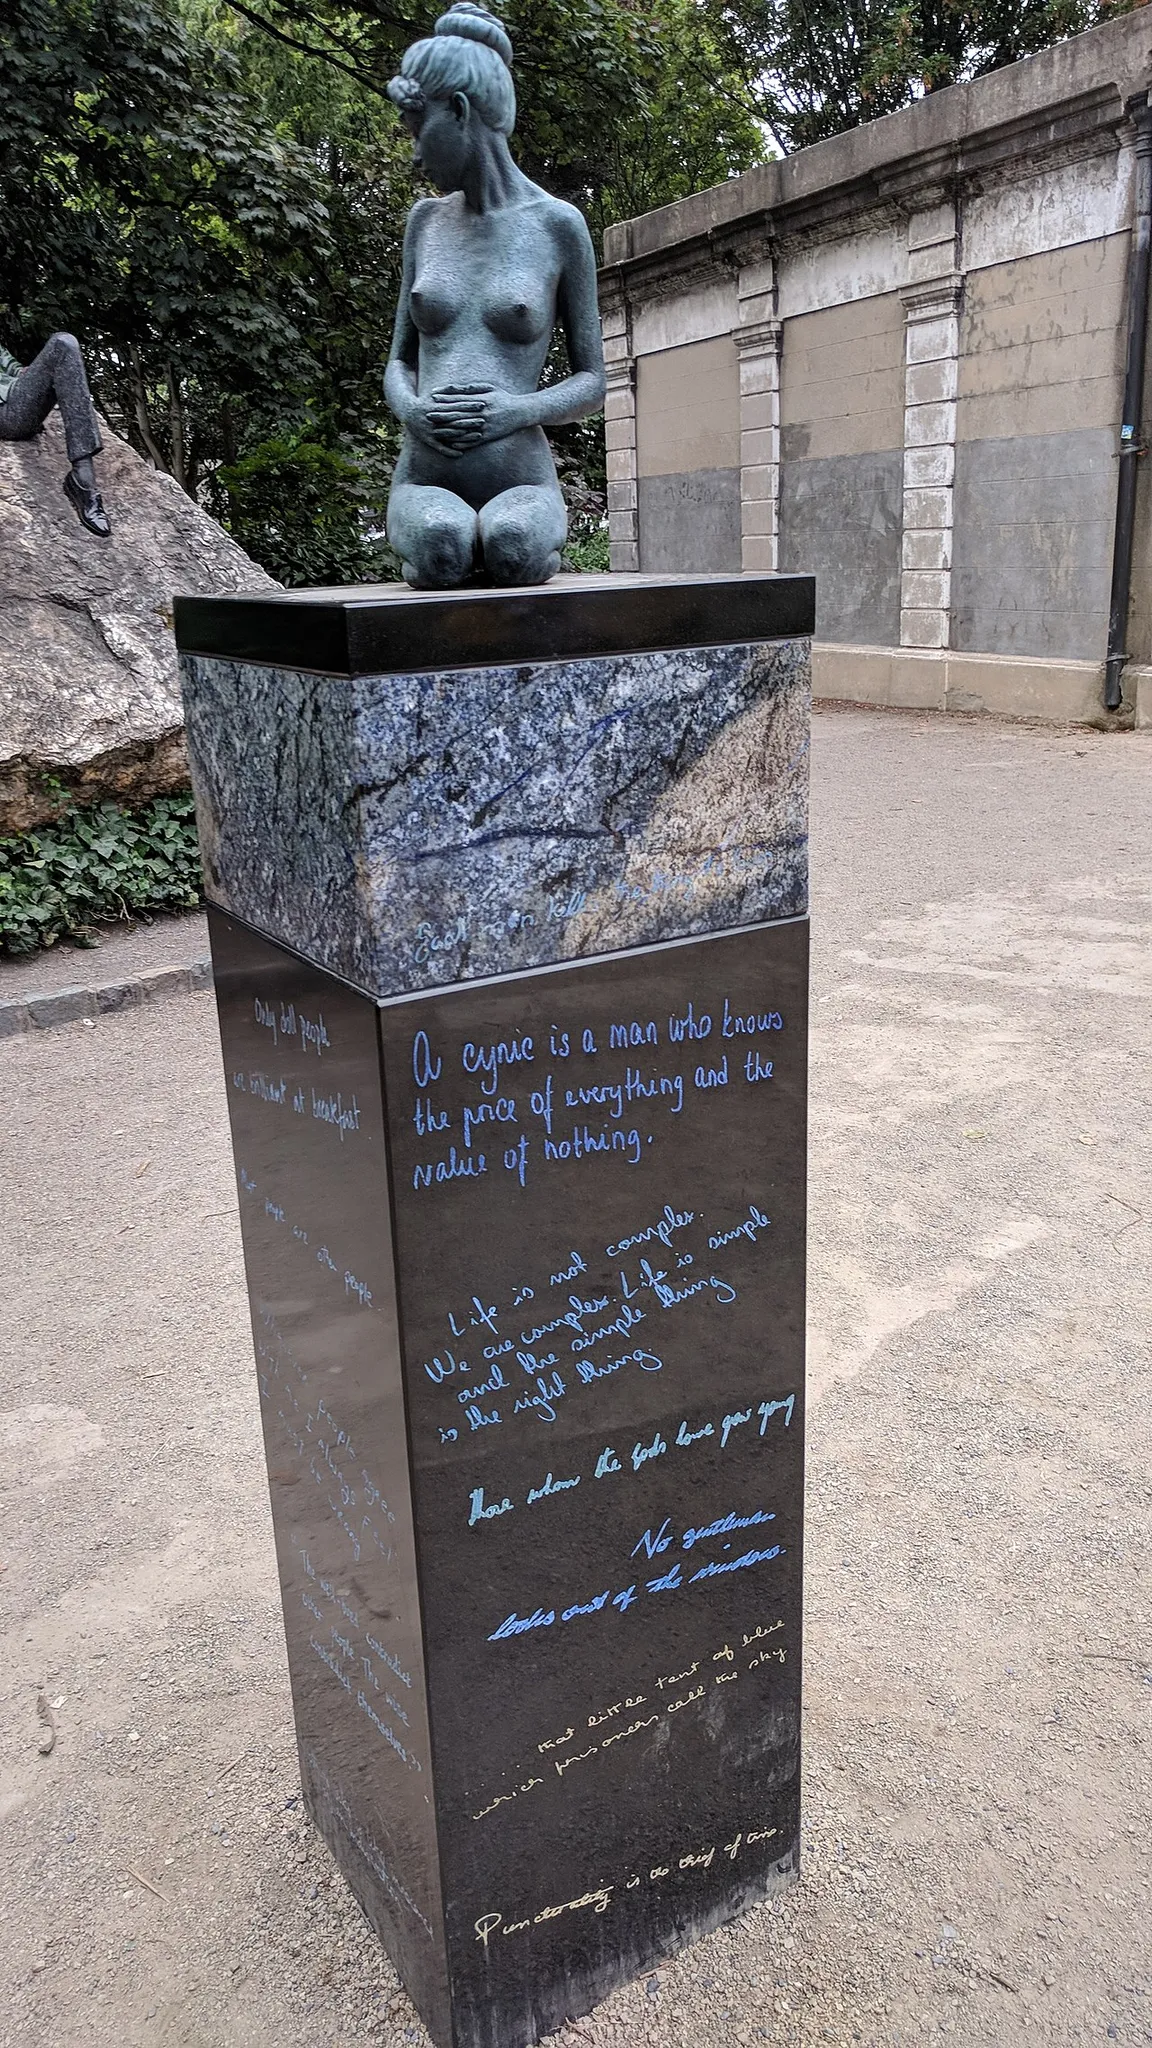 Each man kills the thing he loves
A cynic is a man who knows
the price of everything and the
value of nothing.
Life is not complex.
We are complex. Life is simple
and the simple thing
is the right thing.
Those whom the gods love grow young
No gentleman
looks out of the window.
that little tent of blue
which prisoners call the sky
Punctuality is the thief of time.
Only dull people
are brilliant at breakfast
Most people are other people.
people agree
I always feel
The well-bred contradict
other people. The wise
contradict themselves.